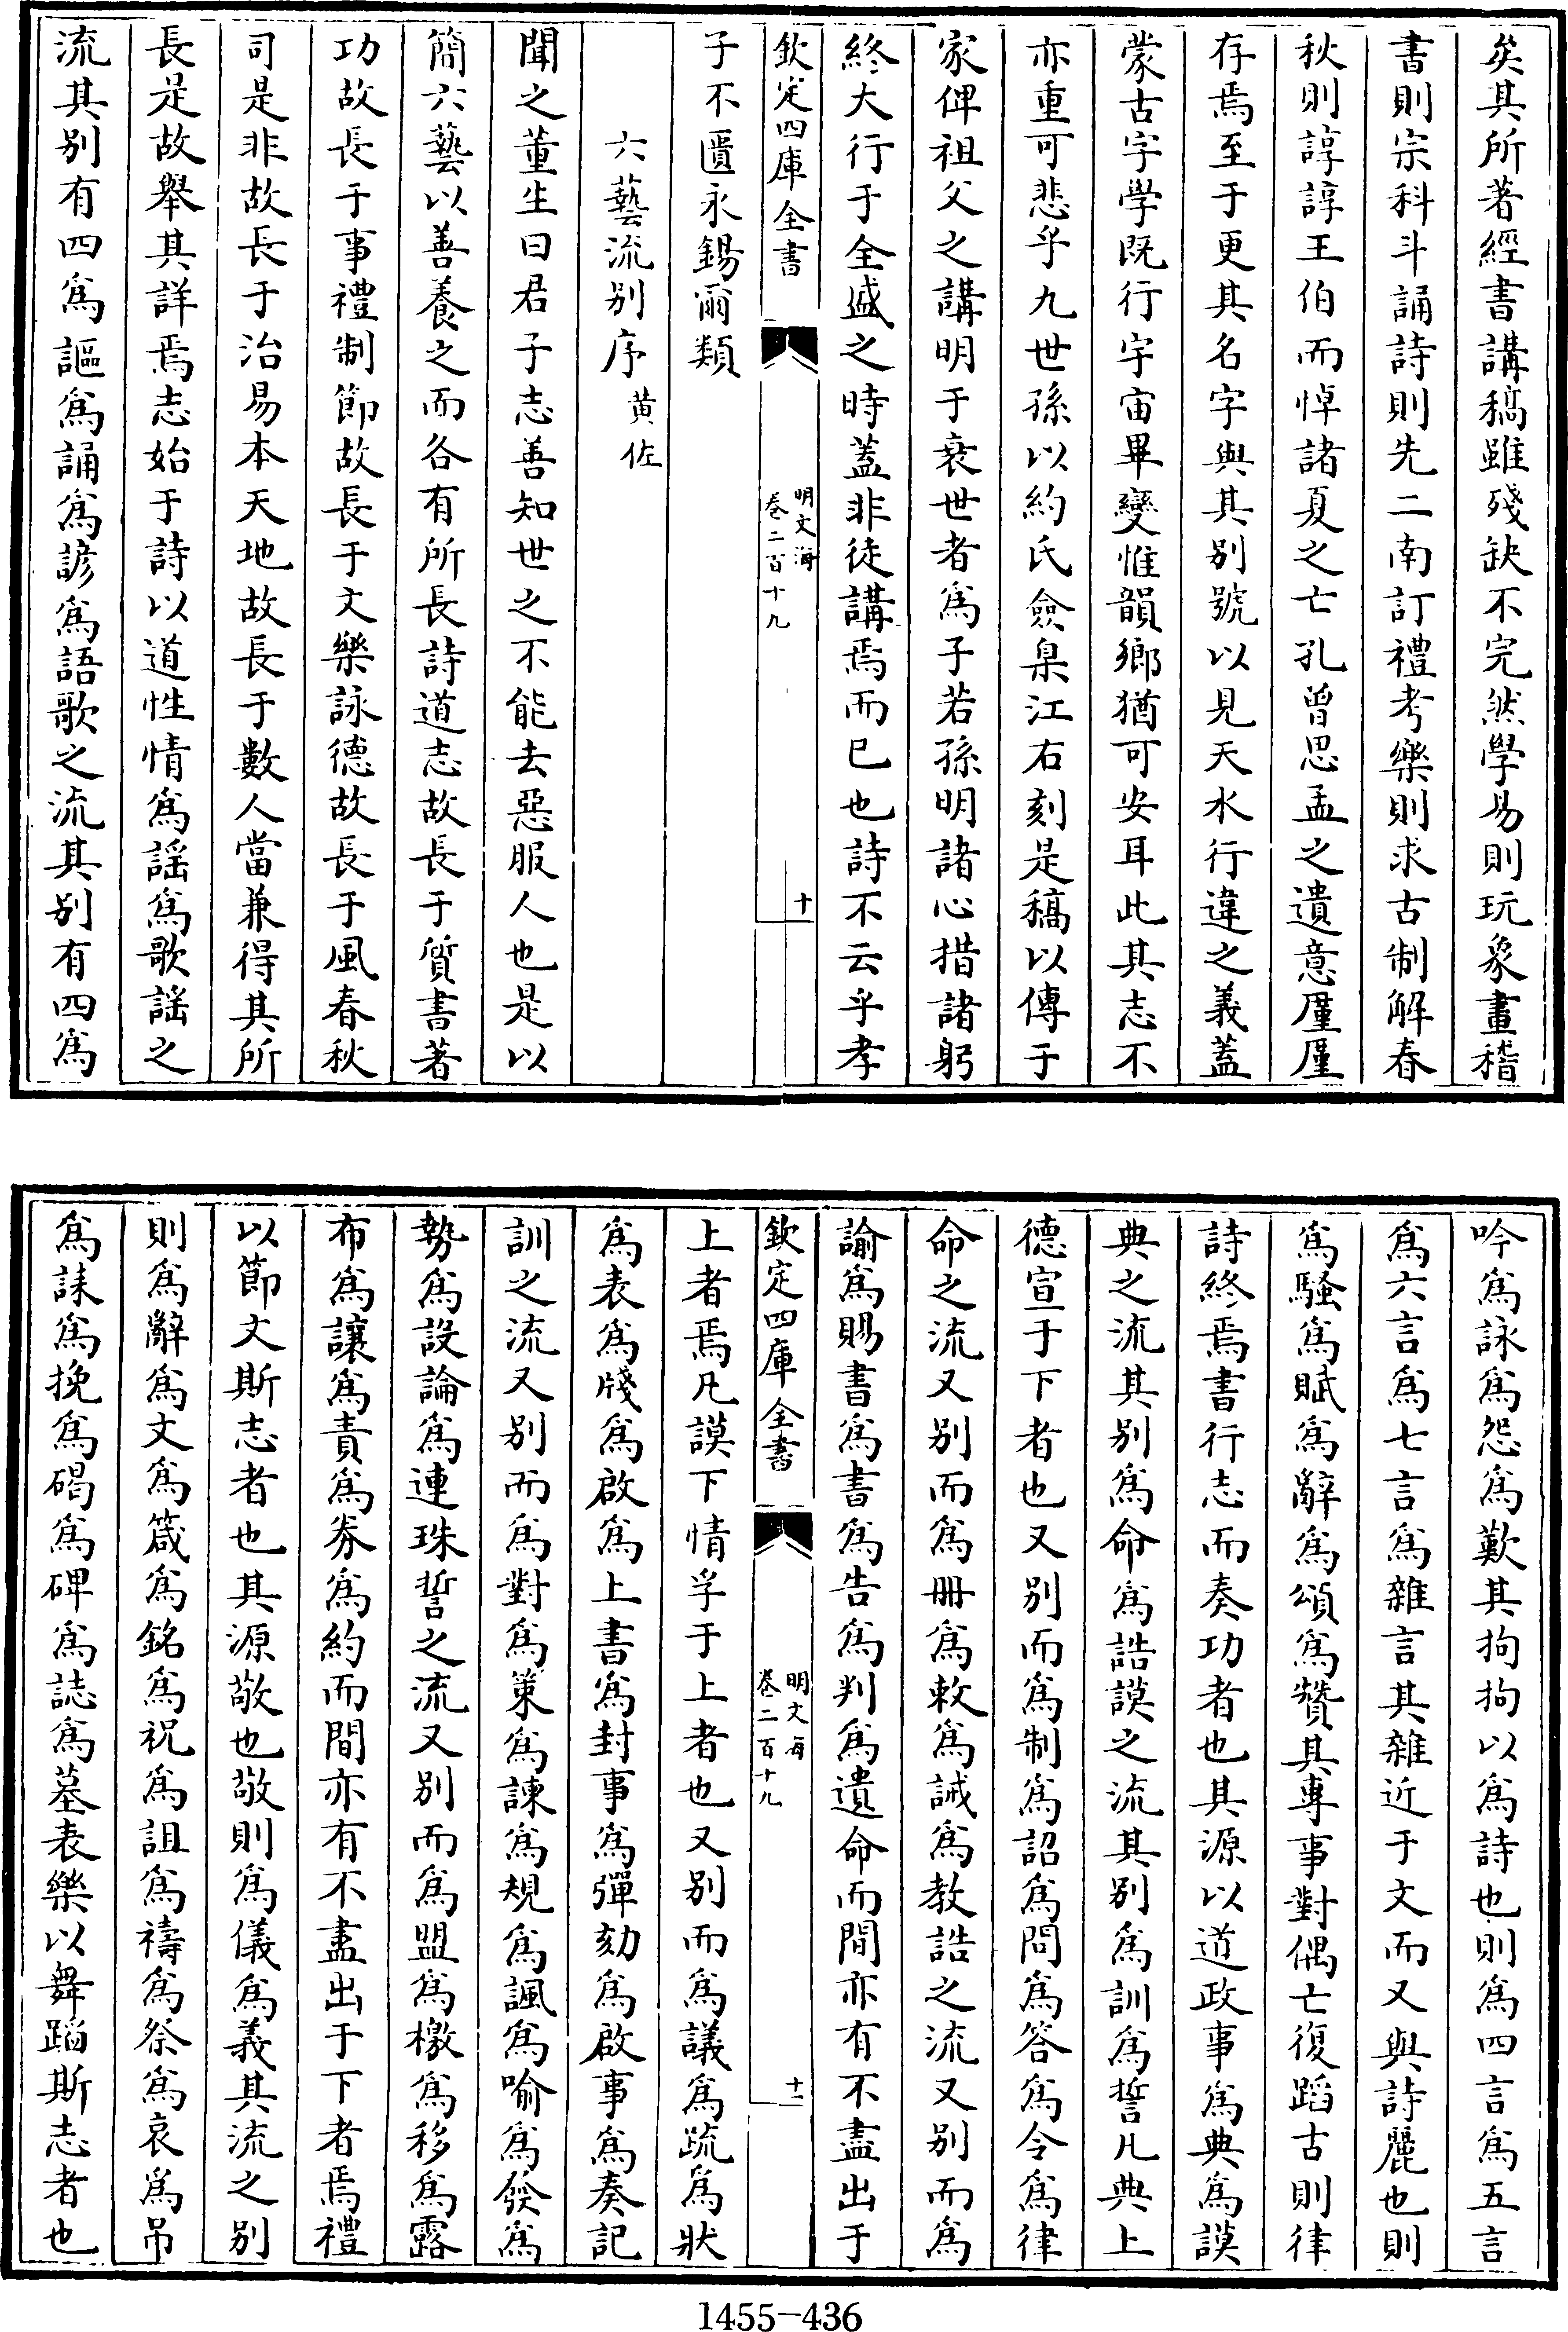 矣其所著經書講稿雖殘缺不完然學易則玩象畫稽
書則宗科斗誦詩則先二南訂禮考樂則求古制解春
秋則諄諄王伯而悼諸夏之亡孔曾思孟之遺意廑廑
存焉至于更其名字與其别號以見天水行違之義蓋
蒙古字學既行宇宙畢變惟韻鄉猶可安耳此其志不
亦重可悲乎九世孫以約氏僉臬江右刻是稿以傳于
家俾祖父之講明于衰世者為子若孫明諸心措諸躬
終大行于全盛之時蓋非徒講焉而已也詩不云乎孝
欽定四庫全書
明文海
卷二百十九
十
子不匱永錫爾類
六藝流别序
黄佐
聞之董生曰君子志善知世之不能去惡服人也是以
簡六藝以善養之而各有所長詩道志故長于質書著
功故長于事禮制節故長于文樂詠德故長于風春秋
司是非故長于治易本天地故長于數人當兼得其所
長是故舉其詳焉志始于詩以道性情為謡為歌謡之
流其别有四為謳為誦為諺為語歌之流其别有四為
吟為詠為怨為歎其拘拘以為詩也則為四言為五言
為六言為七言為雜言其雜近于文而又與詩麗也則
為騷為賦為辭為頌為贊其專事對偶亡復蹈古則律
詩終焉書行志而奏功者也其源以道政事為典為謨
典之流其别為命為誥謨之流其别為訓為誓凡典上
德宣于下者也又别而為制為詔為問為答為令為律
命之流又别而為冊為敕為誡為教誥之流又别而為
諭為賜書為書為告為判為遺命而間亦有不盡出于
欽定四庫全書
明文海
卷二百十九
十一
上者焉凡謨下情孚于上者也又别而為議為疏為狀
為表為牋為啟為上書為封事為彈劾為啟事為奏記
訓之流又别而為對為策為諫為規為諷為喻為發為
勢為設論為連珠誓之流又别而為盟為檄為移為露
布為讓為責為券為約而間亦有不盡出于下者焉禮
以節文斯志者也其源敬也敬則為儀為義其流之别
則為辭為文為箴為銘為祝為詛為禱為祭為哀為弔
為誄為挽為碣為碑為誌為墓表樂以舞蹈斯志者也
1455-436